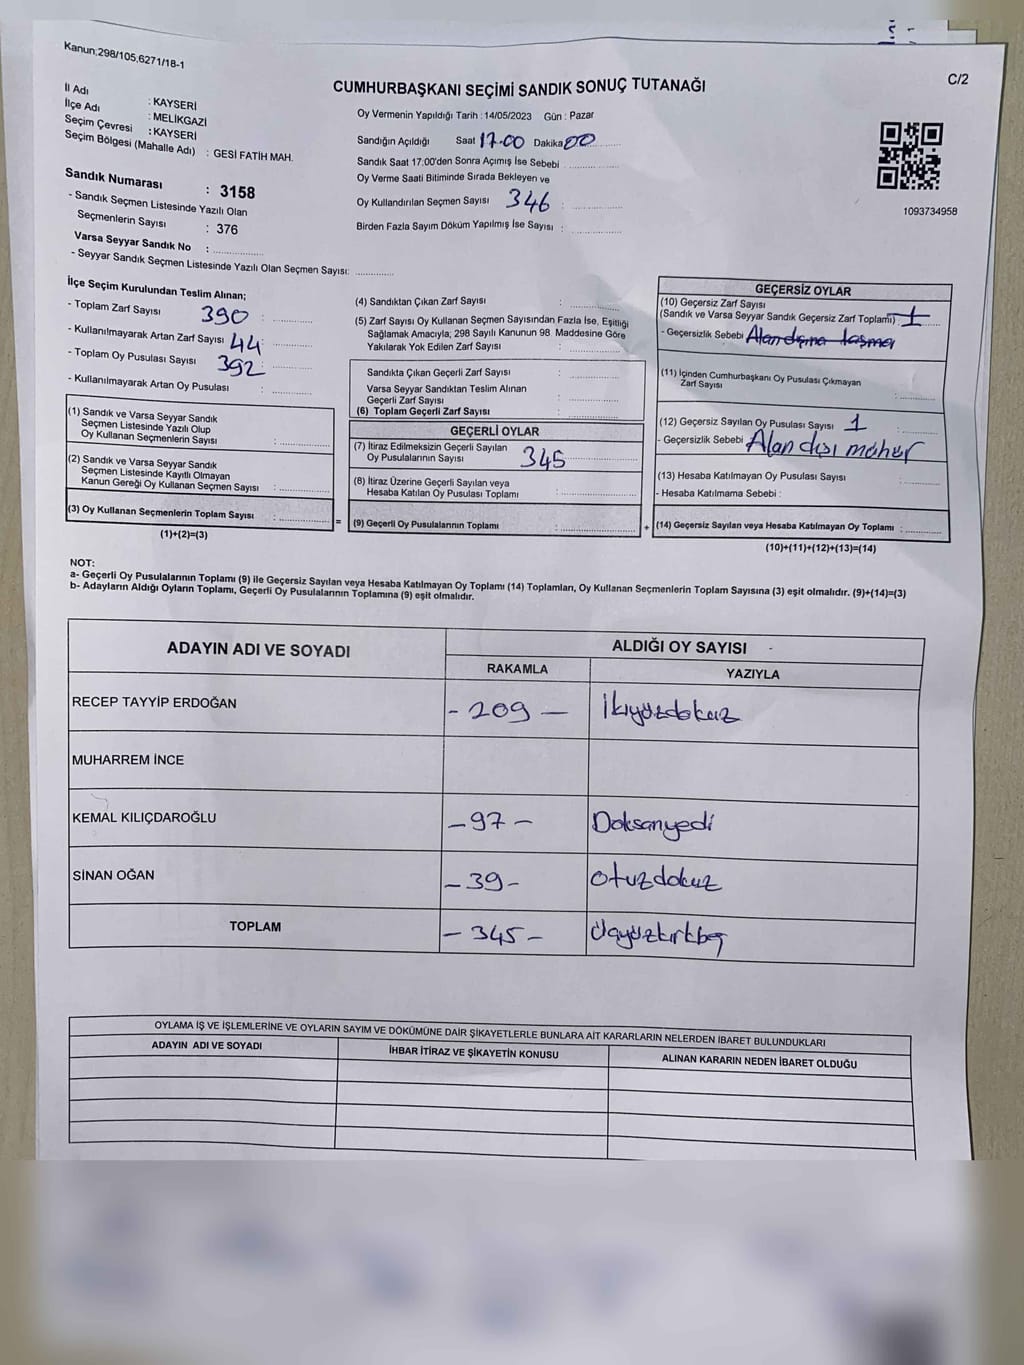 Kanun;298/105,6271/18-1
C/2
CUMHURBAŞKANI SEÇİMİ SANDIK SONUÇ TUTANAĞI
İl Adı : KAYSERİ
İlçe Adı : MELİKGAZİ
Seçim Çevresi : KAYSERİ
Seçim Bölgesi (Mahalle Adı) : GESİ FATİH MAH.
Sandık Numarası : 3158
- Sandık Seçmen Listesinde Yazılı Olan
Seçmenlerin Sayısı : 376
Varsa Seyyar Sandık No :
- Seyyar Sandık Seçmen Listesinde Yazılı Olan Seçmen Sayısı:
Oy Vermenin Yapıldığı Tarih : 14/05/2023 Gün : Pazar
Sandığın Açıldığı Saat 17.00 Dakika 00
Sandık Saat 17.00'den Sonra Açımış İse Sebebi
Oy Verme Saati Bitiminde Sırada Bekleyen ve
Oy Kullandırılan Seçmen Sayısı 346 :
Birden Fazla Sayım Döküm Yapılmış İse Sayısı :
1093734958
İlçe Seçim Kurulundan Teslim Alınan;
- Toplam Zarf Sayısı 390 :
- Kullanılmayarak Artan Zarf Sayısı 44
- Toplam Oy Pusulası Sayısı 392
- Kullanılmayarak Artan Oy Pusulası :
(1) Sandık ve Varsa Seyyar Sandık
Seçmen Listesinde Yazılı Olup
Oy Kullanan Seçmenlerin Sayısı :
(2) Sandık ve Varsa Seyyar Sandık
Seçmen Listesinde Kayıtlı Olmayan
Kanun Gereği Oy Kullanan Seçmen Sayısı :
(3) Oy Kullanan Seçmenlerin Toplam Sayısı : =
(1)+(2)=(3)
(4) Sandıktan Çıkan Zarf Sayısı :
(5) Zarf Sayısı Oy Kullanan Seçmen Sayısından Fazla İse, Eşitliği
Sağlamak Amacıyla; 298 Sayılı Kanunun 98. Maddesine Göre
Yakılarak Yok Edilen Zarf Sayısı :
Sandıkta Çıkan Geçerli Zarf Sayısı :
Varsa Seyyar Sandıktan Teslim Alınan
Geçerli Zarf Sayısı :
(6) Toplam Geçerli Zarf Sayısı :
GEÇERLİ OYLAR
(7) İtiraz Edilmeksizin Geçerli Sayılan
Oy Pusulalarının Sayısı 345
(8) İtiraz Üzerine Geçerli Sayılan veya
Hesaba Katılan Oy Pusulası Toplamı :
(9) Geçerli Oy Pusulalarının Toplamı : +
GEÇERSİZ OYLAR
(10) Geçersiz Zarf Sayısı
(Sandık ve Varsa Seyyar Sandık Geçersiz Zarf Toplamı) 1
- Geçersizlik Sebebi Alandışına taşma
(11) İçinden Cumhurbaşkanı Oy Pusulası Çıkmayan
Zarf Sayısı :
(12) Geçersiz Sayılan Oy Pusulası Sayısı 1 :
- Geçersizlik Sebebi Alan dışı mühür
(13) Hesaba Katılmayan Oy Pusulası Sayısı :
- Hesaba Katılmama Sebebi :
(14) Geçersiz Sayılan veya Hesaba Katılmayan Oy Toplamı :
(10)+(11)+(12)+(13)=(14)
NOT:
a- Geçerli Oy Pusulalarının Toplamı (9) ile Geçersiz Sayılan veya Hesaba Katılmayan Oy Toplamı (14) Toplamları, Oy Kullanan Seçmenlerin Toplam Sayısına (3) eşit olmalıdır. (9)+(14)=(3)
b- Adayların Aldığı Oyların Toplamı, Geçerli Oy Pusulalarının Toplamına (9) eşit olmalıdır.
ADAYIN ADI VE SOYADI
ALDIĞI OY SAYISI
RAKAMLA YAZIYLA
RECEP TAYYİP ERDOĞAN - 209 - İkiyüzdokuz
MUHARREM İNCE
KEMAL KILIÇDAROĞLU - 97 - Doksanyedi
SİNAN OĞAN - 39 - otuzdokuz
TOPLAM - 345 - Üçyüzkırkbeş
OYLAMA İŞ VE İŞLEMLERİNE VE OYLARIN SAYIM VE DÖKÜMÜNE DAİR ŞİKAYETLERLE BUNLARA AİT KARARLARIN NELERDEN İBARET BULUNDUKLARI
ADAYIN ADI VE SOYADI İHBAR İTİRAZ VE ŞİKAYETİN KONUSU ALINAN KARARIN NEDEN İBARET OLDUĞU